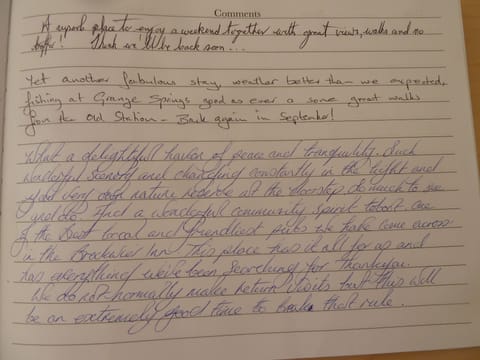 Comments
A superb place to enjoy a weekend together with great views, walks and no
Think we'll be back soon...
Yet another fabulous stay, weather better than we expected,
fishing at Grange Springs good as ever & some great walks
from the Old Station - Back again in September!
What a delightful haven of peace and tranquility. Such
wonderful scenery and changing constantly in the light and
your very own nature reserve at the doorstep so much to see
and do. And a wonderful community spirit to boot. One
of the best local and friendliest pubs we have come across
in the Inn. This place has it all for us and
has everything we've been searching for Thankyou.
We do not normally make return visits but this will
be an extremely good time to break that rule.